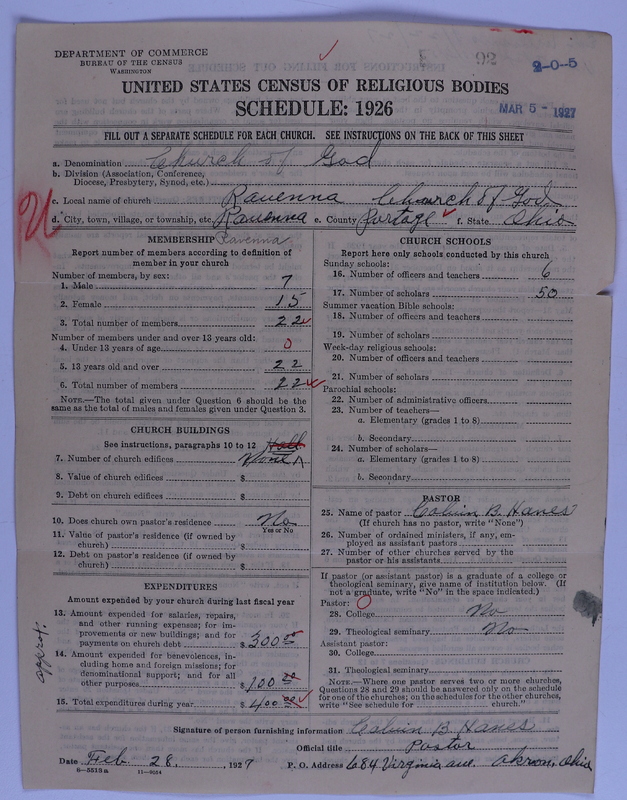 DEPARTMENT OF COMMERCE
BUREAU OF THE CENSUS
WASHINGTON
92
2-0-5
UNITED STATES CENSUS OF RELIGIOUS BODIES
SCHEDULE: 1926
MAR 5 - 1927
FILL OUT A SEPARATE SCHEDULE FOR EACH CHURCH. SEE INSTRUCTIONS ON THE BACK OF THIS SHEET
a. Denomination Church of God
b. Division (Association, Conference,
Diocese, Presbytery, Synod, etc.)
c. Local name of church Ravenna Church of God
d. City, town, village, or township, etc. Ravenna e. County Portage f. State Ohio
MEMBERSHIP Ravenna
Report number of members according to definition of
member in your church
Number of members, by sex:
1. Male 7
2. Female 15
3. Total number of members 22
Number of members under and over 13 years old:
4. Under 13 years of age 0
5. 13 years old and over 22
6. Total number of members 22
NOTE.—The total given under Question 6 should be
the same as the total of males and females given under Question 3.
CHURCH BUILDINGS
See instructions, paragraphs 10 to 12 Hall
7. Number of church edifices None
8. Value of church edifices $
9. Debt on church edifices $
10. Does church own pastor's residence No
Yes or No
11. Value of pastor's residence (if owned by
church) $
12. Debt on pastor's residence (if owned by
church) $
EXPENDITURES
Amount expended by your church during last fiscal year
13. Amount expended for salaries, repairs,
and other running expenses; for im-
provements or new buildings; and for
payments on church debt $300
14. Amount expended for benevolences, in-
cluding home and foreign missions; for
denominational support; and for all
other purposes $100 00
approx.
15. Total expenditures during year $400 00
CHURCH SCHOOLS
Report here only schools conducted by this church
Sunday schools:
16. Number of officers and teachers 6
17. Number of scholars 50
Summer vacation Bible schools:
18. Number of officers and teachers
19. Number of scholars
Week-day religious schools:
20. Number of officers and teachers
21. Number of scholars
Parochial schools:
22. Number of administrative officers
23. Number of teachers—
a. Elementary (grades 1 to 8)
b. Secondary
24. Number of scholars—
a. Elementary (grades 1 to 8)
b. Secondary
PASTOR
25. Name of pastor Calvin B. Hanes
(If church has no pastor, write "None")
26. Number of ordained ministers, if any, em-
ployed as assistant pastors
27. Number of other churches served by the
pastor or his assistants
If pastor (or assistant pastor) is a graduate of a college or
theological seminary, give name of institution below. (If
not a graduate, write "No" in the space indicated.)
Pastor: 0
28. College No
29. Theological seminary No
Assistant pastor:
30. College
31. Theological seminary
NOTE.—Where one pastor serves two or more churches,
Questions 28 and 29 should be answered only on the schedule
for one of the churches; on the schedules for the other churches,
write "See schedule for church."
Signature of person furnishing information Calvin B. Hanes
Official title Pastor
Date Feb. 28, 1927 P. O. Address 684 Virginia ave. Akron, Ohio
8-551Sa 11-9054